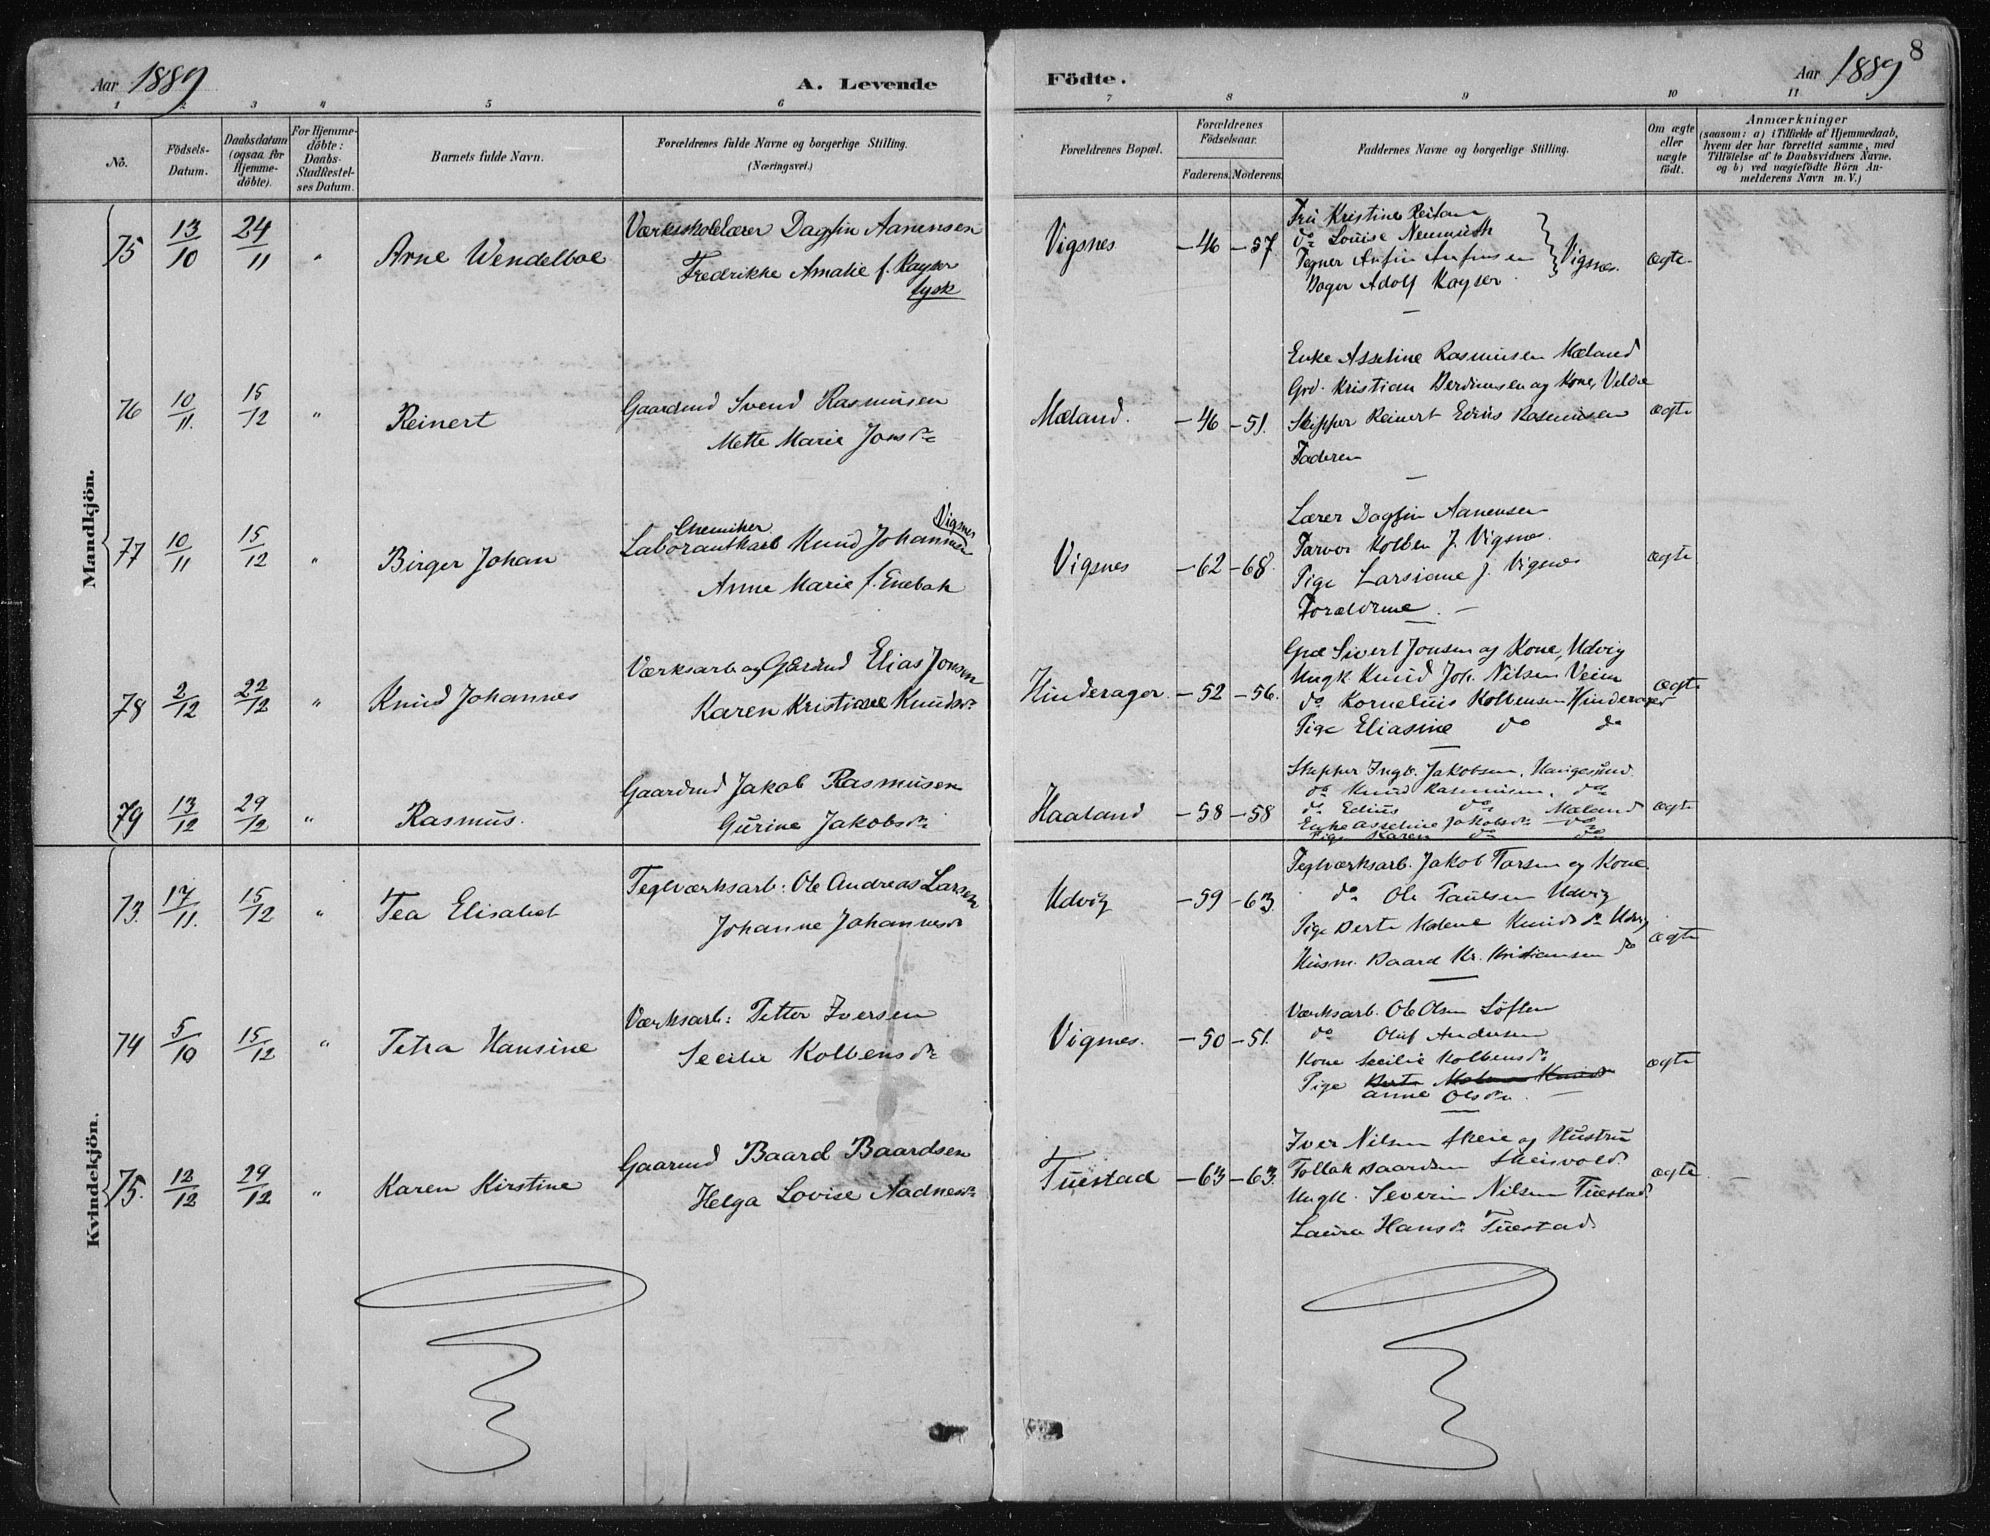 8
Aar 1889 A. Levende Födte. Aar 1889
1 2 3 4 5 6 7 8 9 10 11
No.
Födsels-Datum.
Daabsdatum (ogsaa for Hjemme-döbte).
For Hjemme-döbte: Daabs-Stadfæstel-ses Datum.
Barnets fulde Navn.
Forældrenes fulde Navne og borgerlige Stilling.
(Næringsvei.)
Forældrenes Bopæl.
Forældrenes Födselsaar.
Faderens. Moderens.
Faddernes Navne og borgerlige Stilling.
Om ægte eller uægte födt.
Anmærkninger
(saasom: a) i Tilfælde af Hjemmedaab,
hvem der har forrettet samme, med
Tilföielse af to Daabsvidners Navne,
og b) ved uægtefödte Börn An-
melderens Navn m. V.)
Mandkjön.
75 13/10 24/11 " Arne Wendelboe
Værksskolelærer Dagfin Aanensen
Fredrikke Amalie f. Kayser
tysk
Vigsnes -46 -57
Fru Kristine Reitan
do Louise Neumuth
Tegner Anfin Anfinsen
Adolf Kayser
Vigsnes.
ægte.
76 10/11. 15/12 " Reinert
Gaardmd Svend Rasmusen
Mette Marie Jonsdr
Mæland. -46 -51.
Enke Asseline Rasmusen Mæland
Grd. Kristian og Kone,
Skipper Reinert Edius Rasmusen
Faderen
ægte
77 10/11 15/12 " Birger Johan
Chemiker Vigsnes
Laborantarb Knud Johannesen
Anne Marie f. Enebak
Vigsnes -62 -68.
Lærer Dagfin Aanensen
Kolben J. Vigsnes.
Pige Larsiane J. Vigsnes
Forældrene.
ægte
78 2/12 22/12 " Knud Johannes
Værksarb og Gaardmd Elias Jonsen
Karen Kristiane Knudsdr
Hinderager. -52 -56.
Sivert Jonsen og Kone, Udvig
Ungk Knud Joh. Nilsen
do Kornelius Kolbensen Hinderager
Pige Eliasine do do
ægte
79 13/12 29/12 " Rasmus.
Gaardmd Jakob Rasmusen
Gurine Jakobsdr
Haaland -58 -58
Skipper Ingb. Jakobsen, Haugesund.
do Knud Rasmusen, do
do Edius do Mæland
Enke Asseline Jakobsdr do
Pige Karen do do
ægte
Kvindekjön.
73. 17/11. 15/12 " Tea Elisabet
Teglværksarb. Ole Andreas Larsen
Johanne Johannesdr
Udvig -59 -63
Teglværksarb. Jakob Larsen og Kone
do Ole Paulsen Udvig
Pige Berte Malene Knudsdr Udvig
Husm. Baard Kr. Kristiansen do
ægte
74 5/10 15/12 " Petra Hansine
Værksarb: Petter Iversen
Secilie Kolbensdr
Vigsnes. -50 -51.
Værksarb. Ole Olsen Løften
do Oluf Andersen
Kone Secilie Kolbensdr
Pige Berte Malene Knudsdr
Anne Olsdr.
ægte
75. 12/12 29/12 " Karen Kirstine
Gaarmd Baard Baardsen
Helga Lovise Aadnesdr
Tuestad -63 -63.
Iver Nilsen og Hustru
Tollak Baardsen Skeisvold.
Ungk. Severin Nilsen Tuestad
Laura Hansdr Tuestad.
ægte.